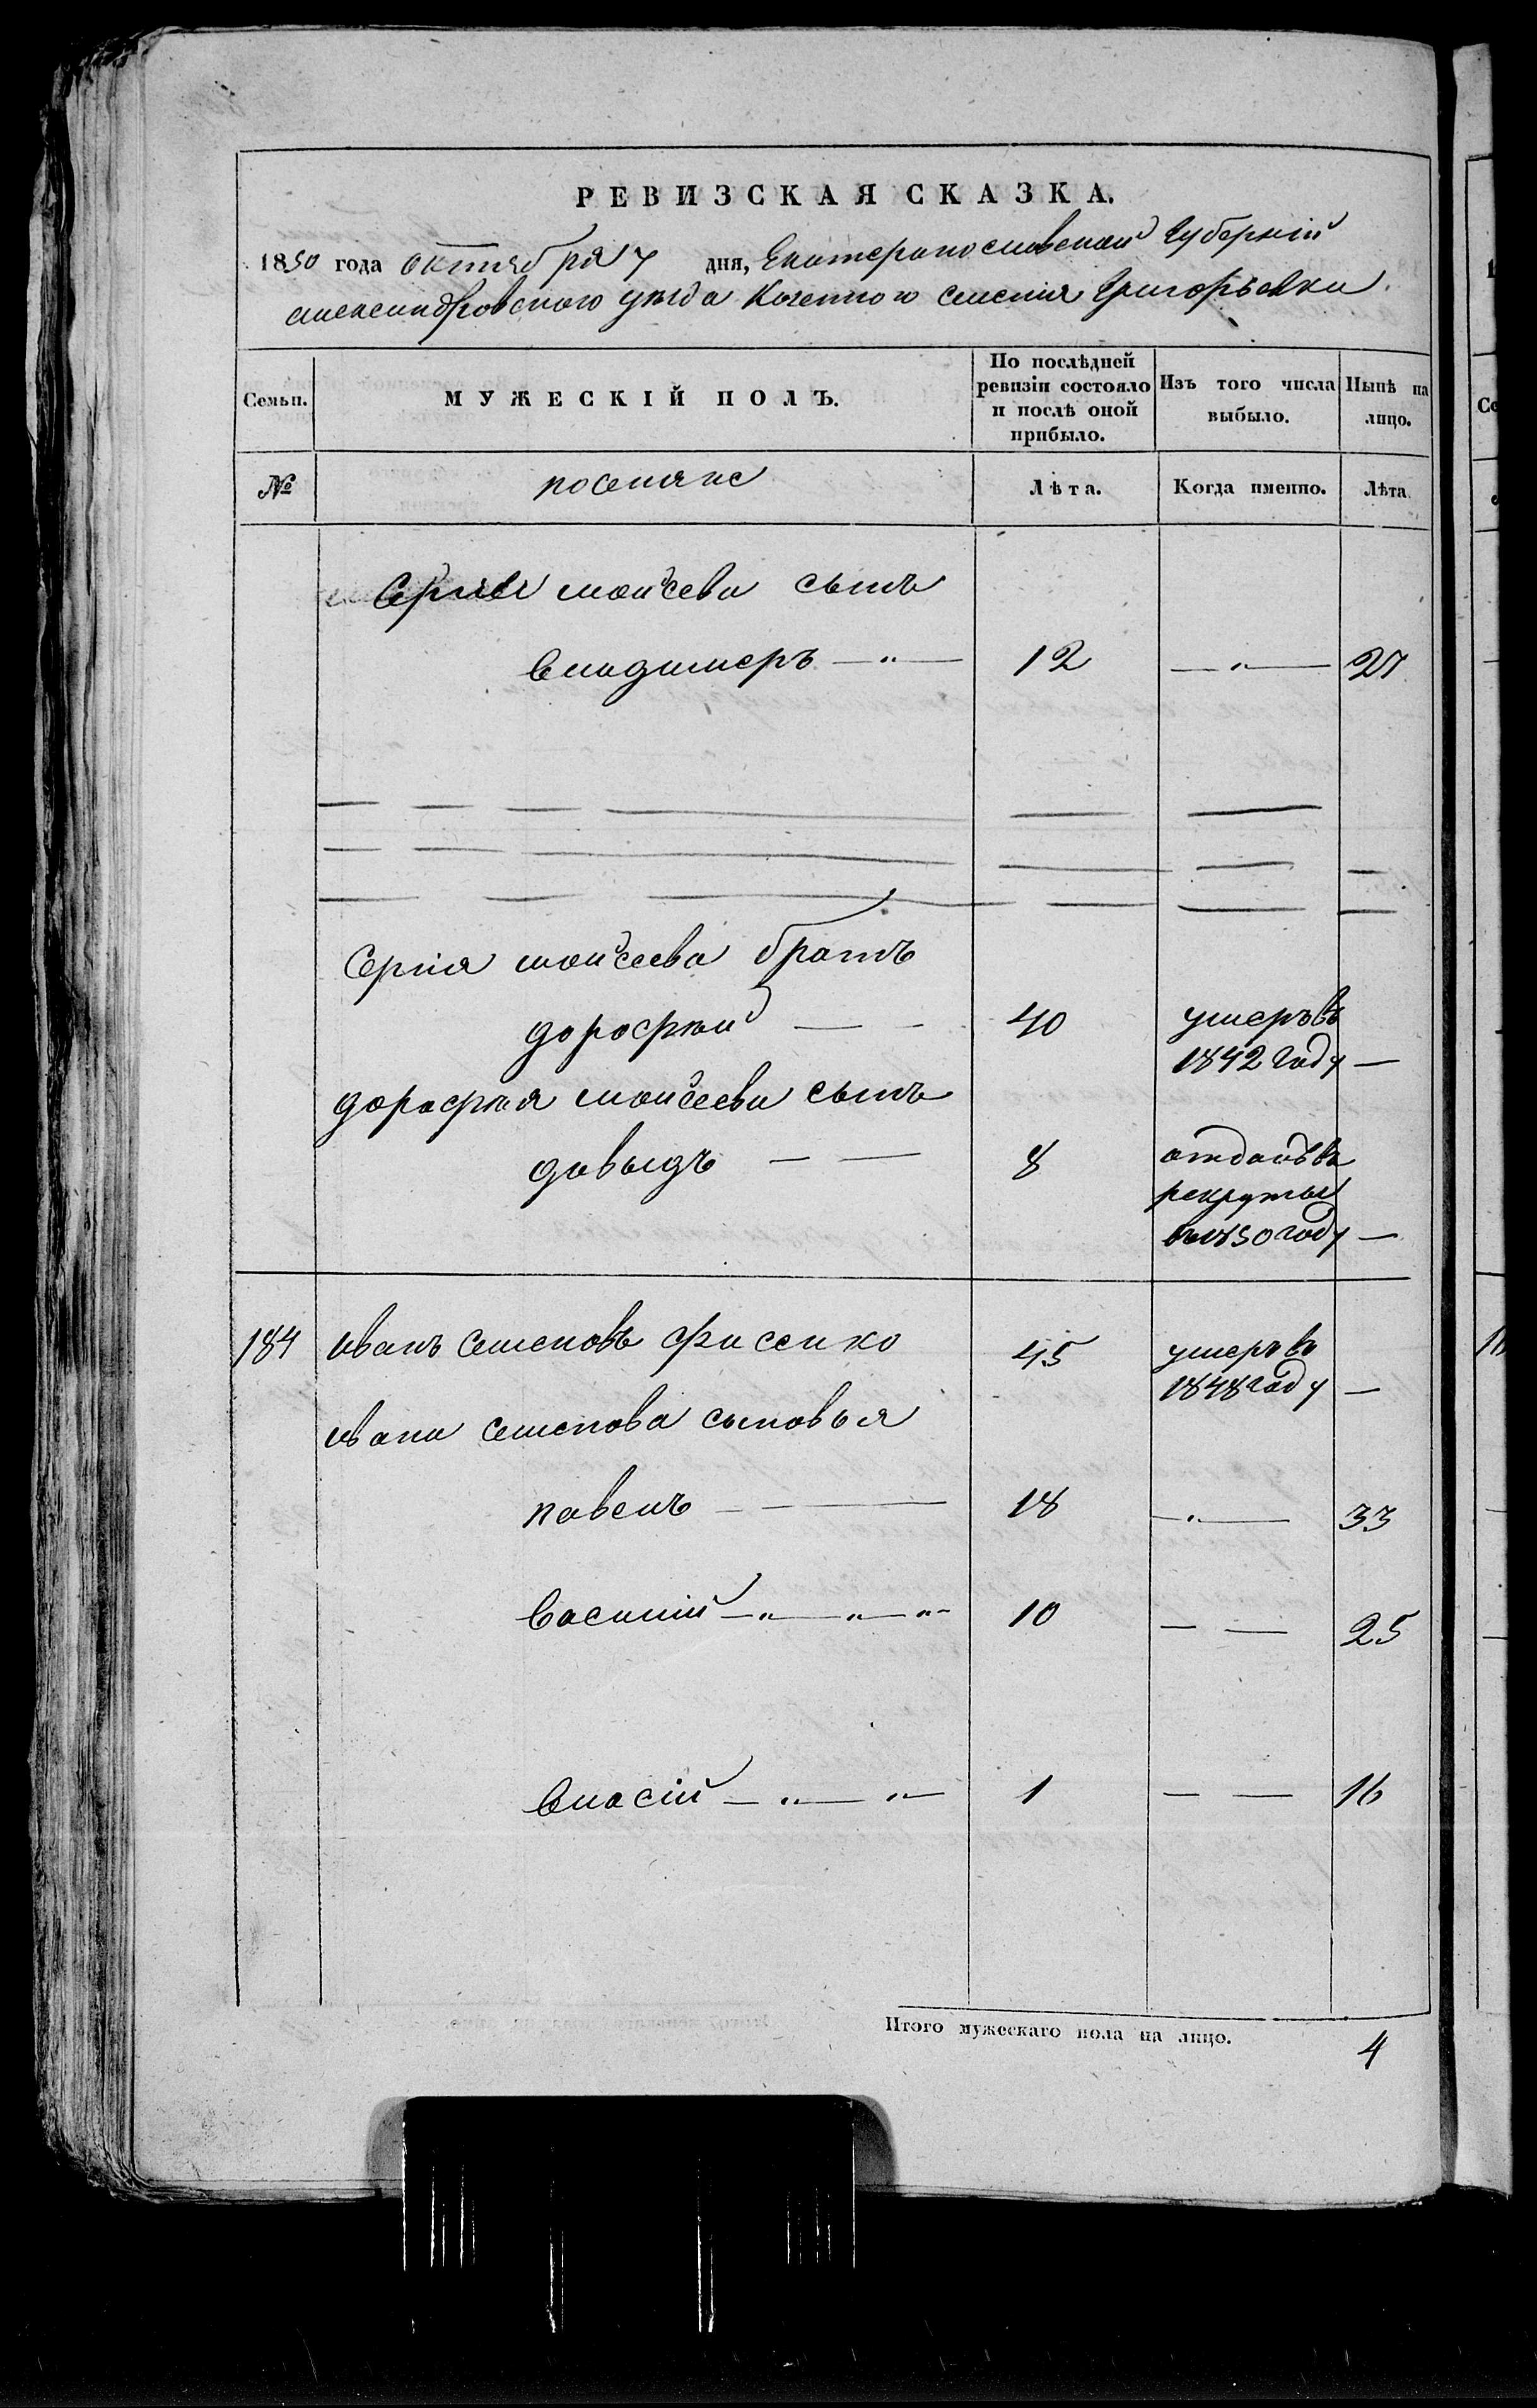 РЕВИЗСКАЯ СКАЗКА.
1850 года октября 7 дня, Екатеринославской Губерніи
александровского уѣзда Казенного селенія Григорьевки.
Семьи. МУЖЕСКІЙ ПОЛЪ. По послѣдней ревизіи состояло и послѣ оной прибыло. Изъ того числа выбыло. Нынѣ на лицо.
№ поселяне Лѣта. Когда именно. Лѣта.
Сергия моисеева сынъ
владимеръ —"— 12 —"— 27
Сергія моисеева братъ
дорофей — 40 умеръ въ
1842 году —
дорофея моисеева сынъ
давыдъ — — 8 отданъ въ
рекруты
въ 1850 году —
184 иванъ семеновъ фисенко 45 умеръ въ
1848 году —
ивана семенова сыновья
павелъ — — 18 —"— 33
василій —"—"—"— 10 — — 25
власій —"—"— 1 — — 16
Итого мужескаго пола на лицо. 4